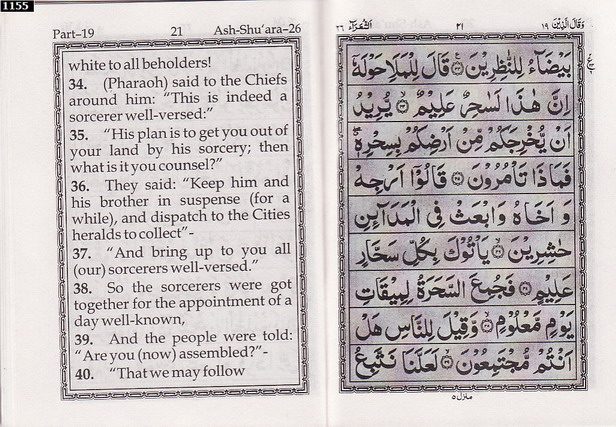 1155
Part–19 21 Ash-Shu’ara-26
white to all beholders!
34. (Pharaoh) said to the Chiefs
around him: “This is indeed a
sorcerer well-versed:”
35. “His plan is to get you out of
your land by his sorcery; then
what is it you counsel?”
36. They said: “Keep him and
his brother in suspense (for a
while), and dispatch to the Cities
heralds to collect”-
37. “And bring up to you all
(our) sorcerers well-versed.”
38. So the sorcerers were got
together for the appointment of a
day well-known,
39. And the people were told:
“Are you (now) assembled?”-
40. “That we may follow
وَقَالَ الَّذِيْنَ ١٩ ٢١ اَلشُّعَرَآء ٢٦
بَيْضَآءُ لِلنّٰظِرِيْنَ ۝ قَالَ لِلْمَلَاِ حَوْلَهٗٓ
اِنَّ هٰذَا لَسٰحِرٌ عَلِيْمٌ ۝ يُّرِيْدُ
اَنْ يُّخْرِجَكُمْ مِّنْ اَرْضِكُمْ بِسِحْرِهٖ
فَمَاذَا تَاْمُرُوْنَ ۝ قَالُوْٓا اَرْجِهْ
وَ اَخَاهُ وَابْعَثْ فِى الْمَدَآئِنِ
حٰشِرِيْنَ ۝ يَاْتُوْكَ بِكُلِّ سَحَّارٍ
عَلِيْمٍ ۝ فَجُمِعَ السَّحَرَةُ لِمِيْقَاتِ
يَوْمٍ مَّعْلُوْمٍ ۝ وَّقِيْلَ لِلنَّاسِ هَلْ
اَنْتُمْ مُّجْتَمِعُوْنَ ۝ لَعَلَّنَا نَتَّبِعُ
منزل ٥